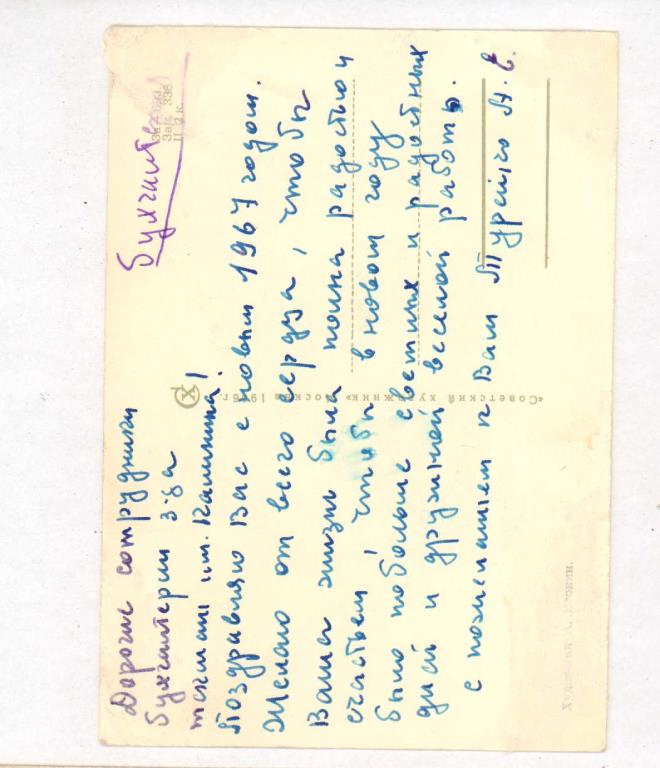 бухгалте
Дорогие сотрудники
бухгалтерии з-да
им. Калинина!
Поздравляю Вас с новым 1967 годом.
Желаю от всего сердца, чтобы
Ваша жизнь была полна радостью и
счастьем, чтобы в новом году
было побольше светлых и радостных
дней и дружной веселой работы.
с пожеланием к Вам
А. В.
«Советский художник» Москва 1966г.
Зак. 336
Ц. 3 к.
Художник